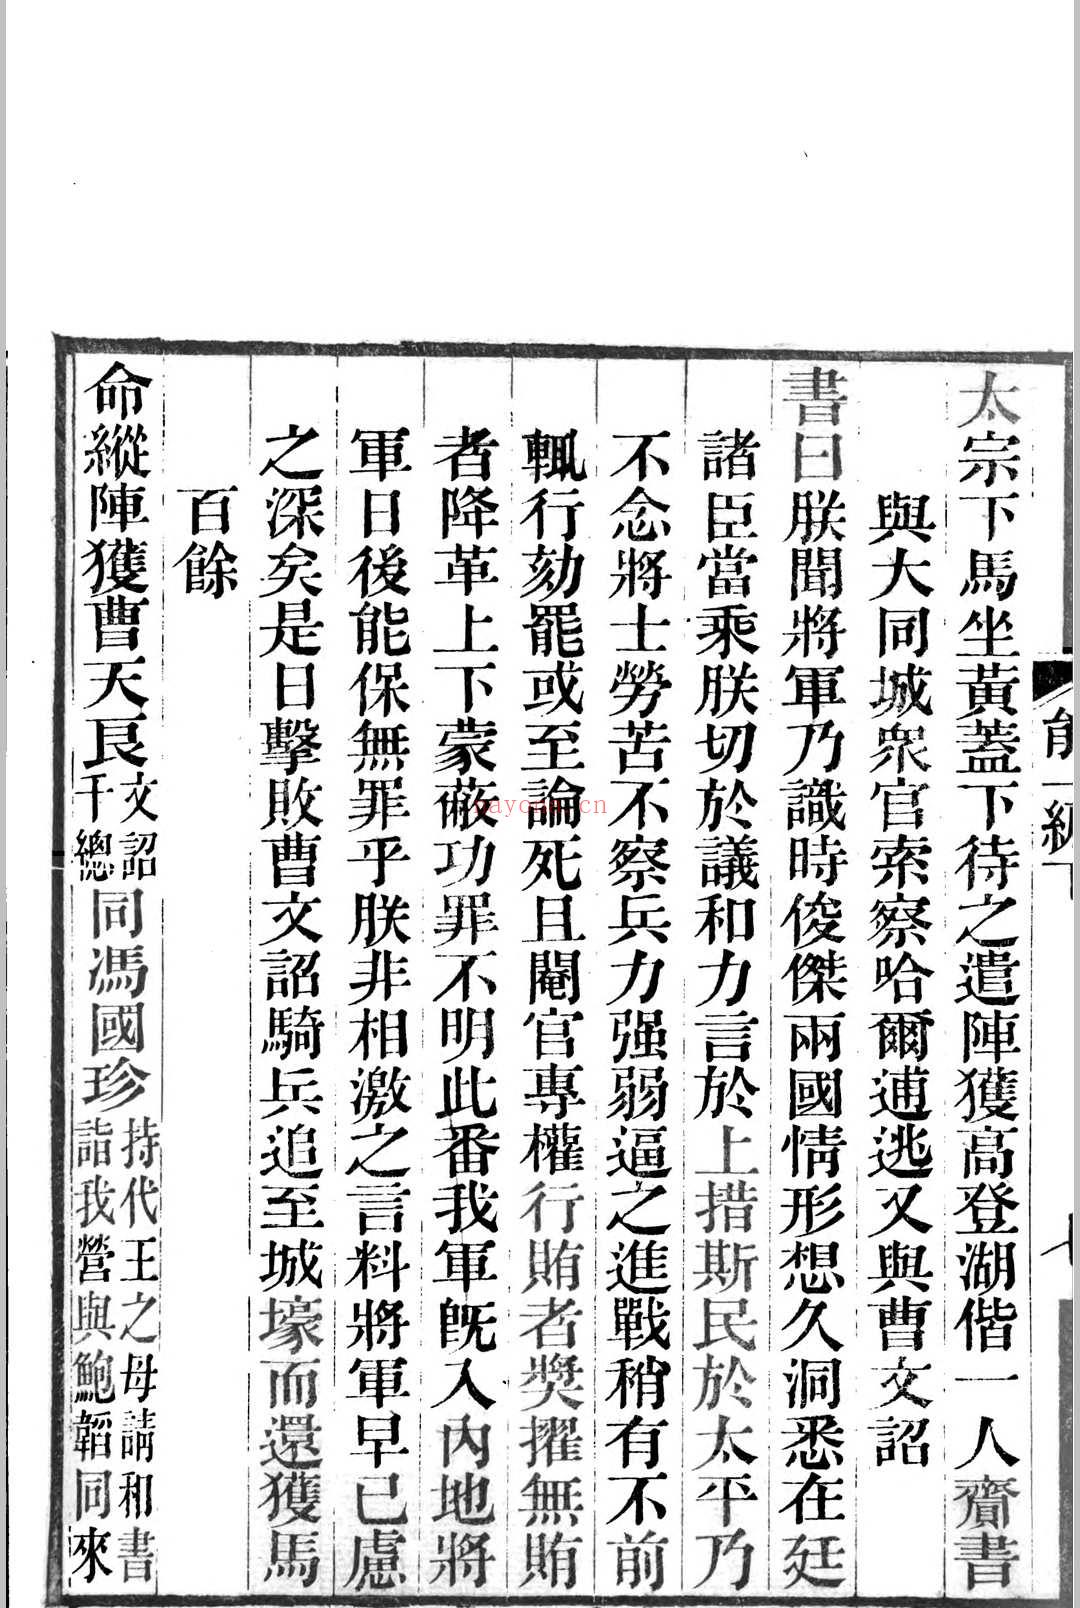 太宗下馬坐黃蓋下待之遣陣獲高登湖偕一人齎書
與大同城衆官索察哈爾逋逃又與曹文詔
書曰朕聞將軍乃識時俊傑兩國情形想久洞悉在廷
諸臣當乘朕切於議和力言於上措斯民於太平乃
不念將士勞苦不察兵力强弱逼之進戰稍有不前
輒行劾罷或至論死且閹官專權行賄者奬擢無賄
者降革上下蒙蔽功罪不明此番我軍旣入內地將
軍日後能保無罪乎朕非相激之言料將軍早已慮
之深矣是日擊敗曹文詔騎兵追至城壕而還獲馬
百餘
命縱陣獲曹天良文詔千總同馮國珍持代王之母請和書詣我營與鮑韜同來